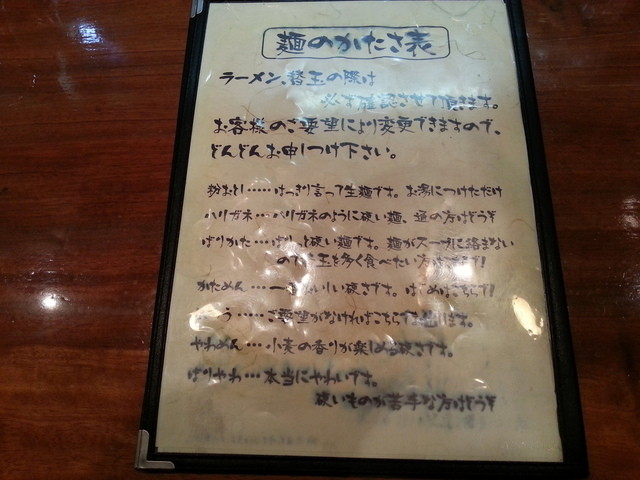 麺のかたさ表
ラーメン、替玉の際は
必ず確認させて頂きます。
お客様のご要望により変更できますので、
どんどんお申しつけ下さい。
粉おとし……はっきり言って生麺です。お湯につけただけ
ハリガネ…ハリガネのように硬い麺、通の方はどうぞ
ばりかた…ばりっと硬い麺です。麺がスープに絡まない
ので替玉を多く食べたい方はどうぞ!
かためん…一番いい硬さです。はじめはこちらで!
う……ご要望がなければこちらでお出します。
やわめん…小麦の香りが楽しめる硬さです。
ばりやわ…本当にやわいです。
硬いものが苦手な方はどうぞ